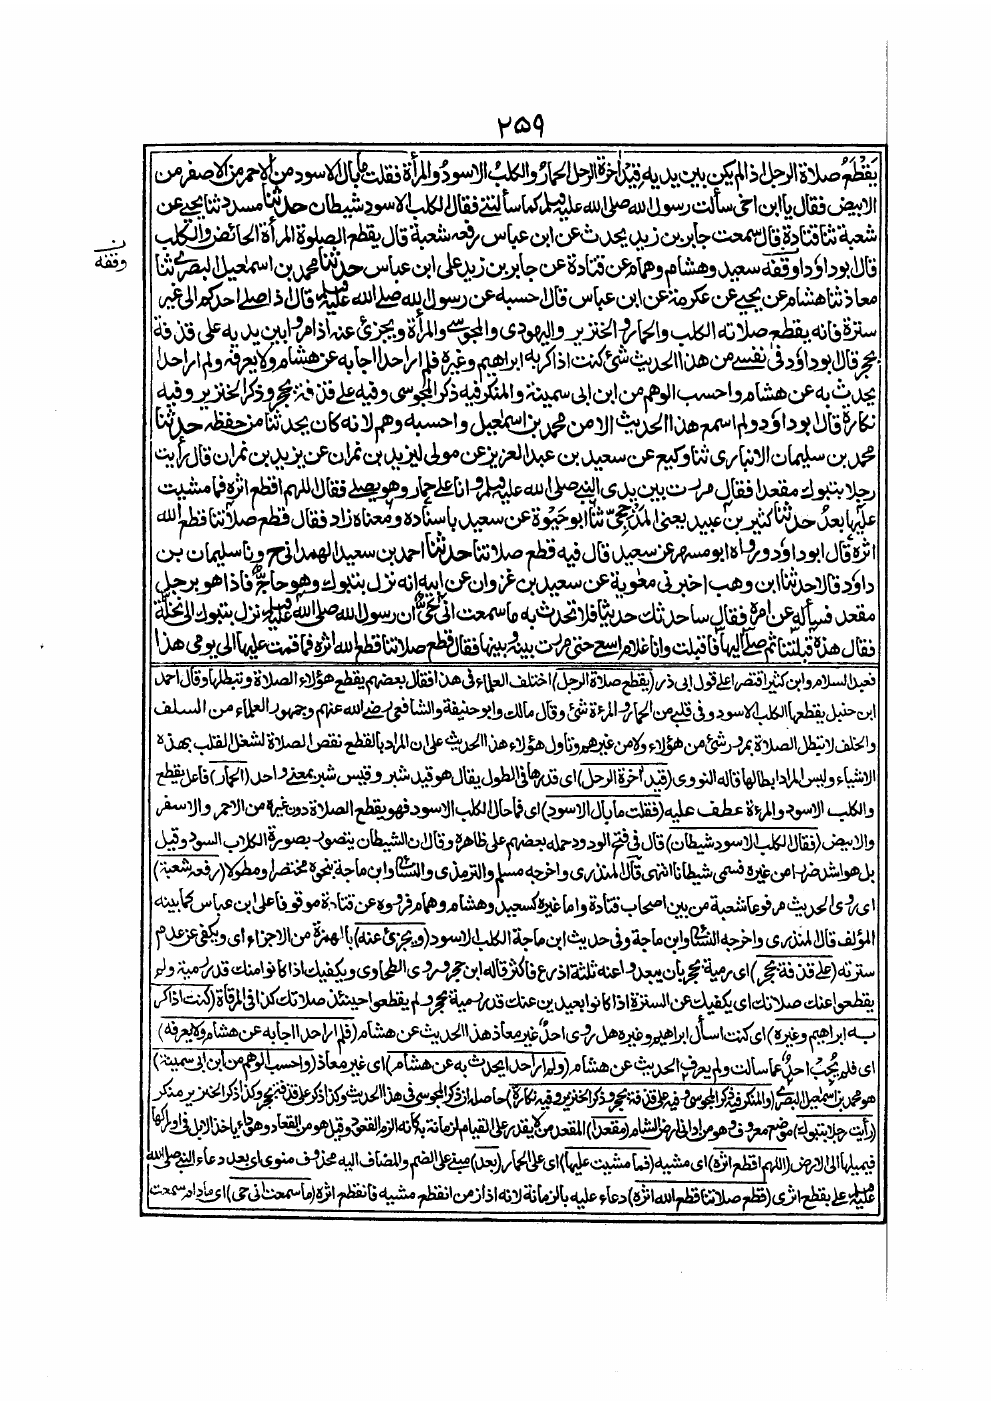 ٢٥٩
يَقْطَعُ صلاة الرجل اذا لم يكن بين يديه قيد اخرة الرحل الحمار والكلب الاسود والمرأة فقلت ما بال الاسود من الاحمر من الاصفر من
الابيض فقال يا ابن اخى سألت رسول الله صلى الله عليه وسلم كما سألتنى فقال الكلب الاسود شيطان حدثنا مسدد ثنا يحيى عن
شعبة ثنا قتادة قال سمعت جابر بن زيد يحدث عن ابن عباس رفعه شعبة قال يقطع الصلوة المرأة الحائض والكلب
قال ابو داؤد اوقفه سعيد وهشام وهمام عن قتادة عن جابر بن زيد على ابن عباس حدثنا محمد بن اسمعيل البصرى ثنا
ن
وقفه
معاذ ثنا هشام عن يحيى عن عكرمة عن ابن عباس قال احسبه عن رسول الله صلى الله عليه وسلم قال اذا صلى احدكم الى غير
سترة فانه يقطع صلاته الكلب والحمار والخنزير واليهودى والمجوسى والمرأة ويجزئ عنه اذا مروا بين يديه على قذفة
بحجر قال ابو داؤد فى نفسى من هذا الحديث شئ كنت اذاكر به ابراهيم وغيره فلم ار احدا اجابه عن هشام ولا يعرفه ولم ار احدا
يحدث به عن هشام واحسب الوهم من ابن ابى سمينة والمنكر فيه ذكر المجوسى وفيه على قذفة بحجر وذكر الخنزير وفيه
نكارة قال ابو داؤد ولم اسمع هذا الحديث الا من محمد بن اسمعيل واحسبه وهم لانه كان يحدثنا من حفظه حدثنا
محمد بن سليمان الانبارى ثنا وكيع عن سعيد بن عبد العزيز عن مولى ليزيد بن نمران عن يزيد بن نمران قال رأيت
رجلا بتبوك مقعدا فقال مررت بين يدى النبى صلى الله عليه وسلم وانا على حمار وهو يصلى فقال اللهم اقطع اثره فما مشيت
عليها بعد حدثنا كثير بن عبيد يعنى المذحجى ثنا ابو حيوة عن سعيد باسناده ومعناه زاد فقال قطع صلاتنا قطع الله
اثره قال ابو داؤد ورواه ابو مسهر عن سعيد قال فيه قطع صلاتنا حدثنا احمد بن سعيد الهمدانى ح ونا سليمان بن
داؤد قالا حدثنا ابن وهب اخبرنى معوية عن سعيد بن غزوان عن ابيه انه نزل بتبوك وهو حاج فاذا هو برجل
مقعد فسأله عن امره فقال ساحدثك حديثا فلا تحدث به ما سمعت انى حى ان رسول الله صلى الله عليه وسلم نزل بتبوك الى نخلة
فقال هذه قبلتنا ثم صلى اليها فاقبلت وانا غلام اسعى حتى مررت بينه وبينها فقال قطع صلاتنا قطع الله اثره فما قمت عليها الى يومى هذا
فعبد السلام وابن كثير اقتصرا على قول ابى ذر (يقطع صلاة الرجل) اختلف العلماء فى هذا فقال بعضهم يقطع هؤلاء الصلاة وتبطلها وقال احمد
ابن حنبل يقطعها الكلب الاسود وفى قلبى من الحمار والمرءة شئ وقال مالك وابو حنيفة والشافعى رضى الله عنهم وجمهور العلماء من السلف
والخلف لا تبطل الصلاة بمرور شئ من هؤلاء ولا من غيرهم وتأول هؤلاء هذا الحديث على ان المراد بالقطع نقص الصلاة لشغل القلب بهذه
الاشياء وليس المراد ابطالها قاله النووى (قيد اخرة الرحل) اى قدرها فى الطول يقال هو قيد شبر وقيس شبر بمعنى واحد (الحمار) فاعل يقطع
والكلب الاسود والمرءة عطف عليه (فقلت ما بال الاسود) اى فما حال الكلب الاسود فهو يقطع الصلاة دون غيره من الاحمر والاصفر
والابيض (فقال الكلب الاسود شيطان) قال فى فتح الودود حمله بعضهم على ظاهره وقال ان الشيطان يتصور بصورة الكلاب السود وقيل
بل هو اشد ضررا من غيره فسمى شيطانا انتهى قال المنذرى واخرجه مسلم والترمذى والنسائى وابن ماجة بنحوه مختصرا ومطولا (رفعه شعبة)
اى روى الحديث مرفوعا شعبة من بين اصحاب قتادة واما غيره كسعيد وهشام وهمام فرووه عن قتادة موقوفا على ابن عباس كما بينه
المؤلف قال المنذرى واخرجه النسائى وابن ماجة وفى حديث ابن ماجة الكلب الاسود (ويجزئ عنه) بالهمزة من الاجزاء اى ويكفى عن عدم
سترته (على قذفة بحجر) اى رمية بحجر بان يبعدوا عنه ثلثة اذرع فاكثر قاله ابن حجر وروى الطحاوى ويكفيك اذا كانوا منك قدر رمية ولم
يقطعوا عنك صلاتك اى يكفيك عن السترة اذا كانوا بعيدين عنك قدر رمية بحجر ولم يقطعوا حينئذ صلاتك كذا فى المرقاة (كنت اذاكر
به ابراهيم وغيره) اى كنت اسأل ابراهيم وغيره هل روى احد غير معاذ هذا الحديث عن هشام (فلم ار احدا اجابه عن هشام ولا يعرفه)
اى فلم يُجِبْ احدٌ عما سألت ولم يعرف الحديث عن هشام (ولم ار احدا يحدث به عن هشام) اى غير معاذ (واحسب الوهم من ابن ابى سمينة)
هو محمد بن اسمعيل البصرى (والمنكر فيه ذكر المجوسى وفيه على قذفة بحجر وذكر الخنزير وفيه نكارة) حاصله ان ذكر المجوسى فى هذا الحديث وكذا ذكر على قذفة بحجر وكذا ذكر الخنزير منكر
(رأيت رجلا بتبوك) موضع معروف وهو من ادانى ارض الشام (مقعدا) المقعد من لا يقدر على القيام لزمانة به كانه الزم القعود وقيل هو من القعاد وهو داء ياخذ الابل فى اوراكها
فيميلها الى الارض (اللهم اقطع اثره) اى مشيه (فما مشيت عليها) اى على الحمار (بعد) مبنى على الضم والمضاف اليه محذوف منوى اى بعد دعاء النبى صلى الله
عليه وسلم على بقطع اثرى (قطع صلاتنا قطع الله اثره) دعاء عليه بالزمانة لانه اذا زمن انقطع مشيه فانقطع اثره (ما سمعت انى حى) اى ما دام سمعت